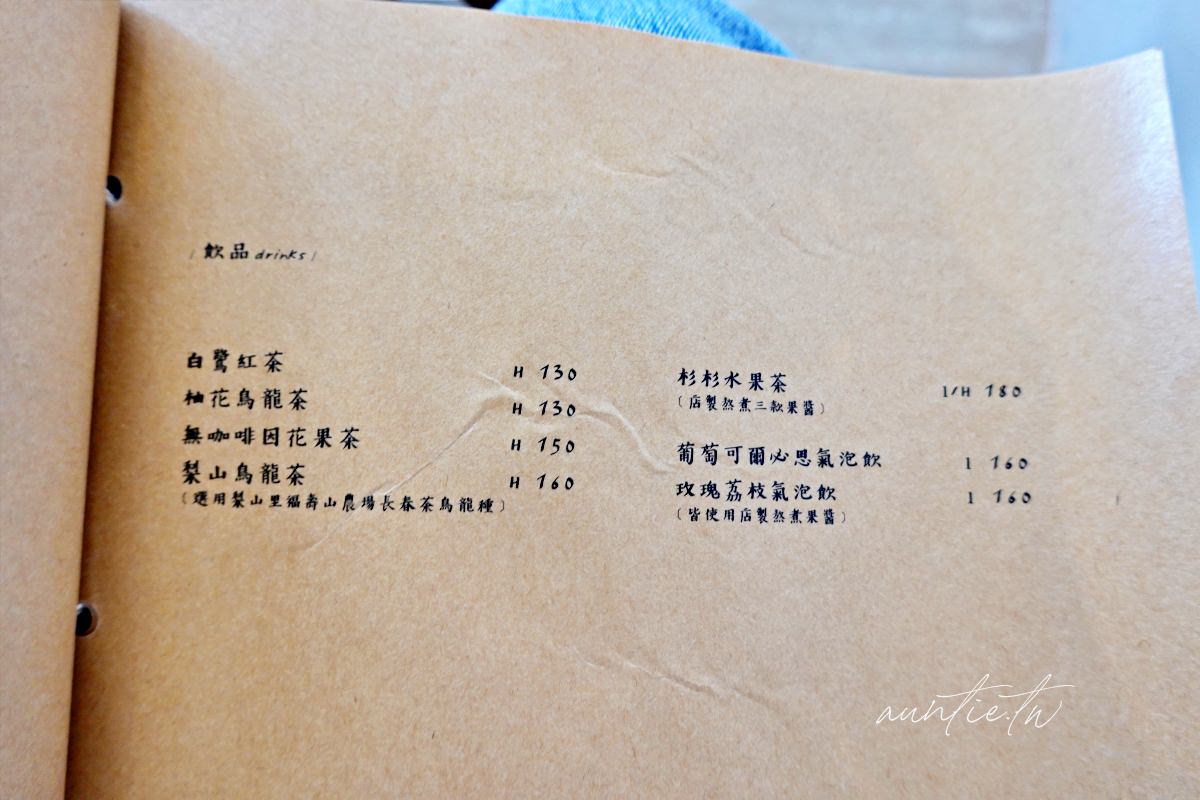 | 飲品 drinks |
白鷺紅茶 H 130
柚花烏龍茶 H 130
無咖啡因花果茶 H 150
梨山烏龍茶 H 160
〔選用梨山里福壽山農場長春茶烏龍種〕
杉杉水果茶 I/H 180
〔店製熬煮三款果醬〕
葡萄可爾必思氣泡飲 I 160
玫瑰荔枝氣泡飲 I 160
〔皆使用店製熬煮果醬〕
auntie.tw